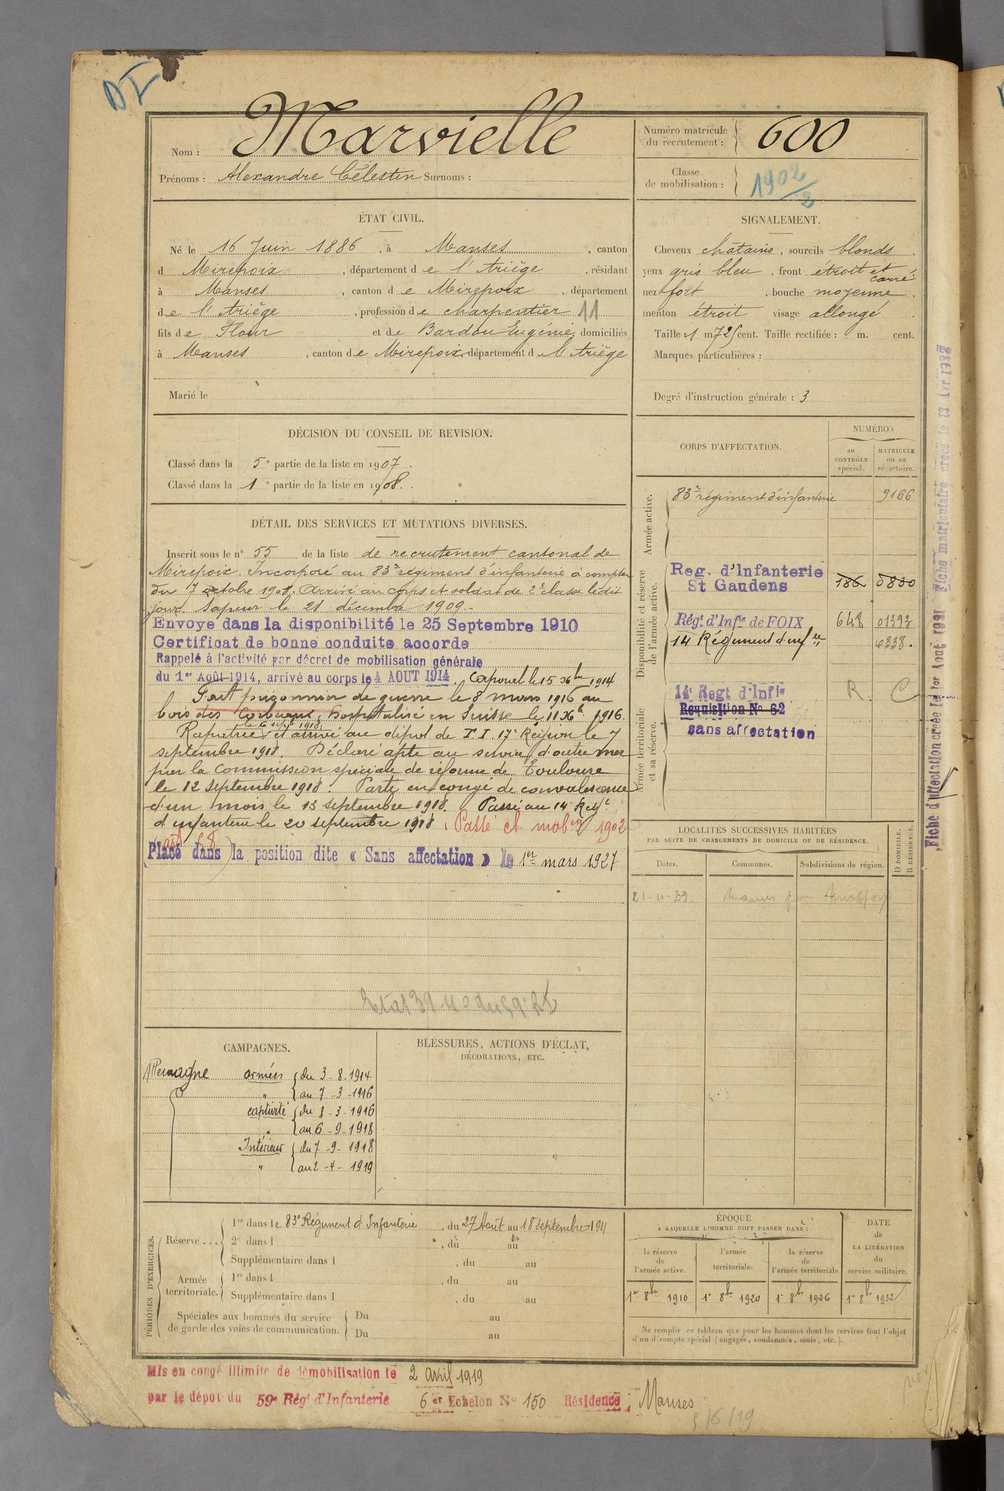 DI
Nom : Marvielle
Prénoms : Alexandre Célestin Surnoms :
Numéro matricule du recrutement : 600
Classe de mobilisation : 1902/2
ÉTAT CIVIL.
Né le 16 Juin 1886, à Manses, canton
d Mirepoix, département de l'Ariège, résidant
à Manses, canton de Mirepoix, département
de l'Ariège, profession de charpentier 11
fils de Flour et de Bardou Eugénie, domiciliés
à Manses, canton de Mirepoix, département de l'Ariège
Marié le
SIGNALEMENT.
Cheveux châtains, sourcils blonds.
yeux gris bleu, front étroit et carré
nez fort, bouche moyenne.
menton étroit visage allongé
Taille : 1 m 725 cent. Taille rectifiée : m. cent.
Marques particulières :
Degré d'instruction générale : 3
DÉCISION DU CONSEIL DE REVISION.
Classé dans la 5e partie de la liste en 1907.
Classé dans la 1e partie de la liste en 1908.
DÉTAIL DES SERVICES ET MUTATIONS DIVERSES.
Inscrit sous le n° 55 de la liste de recrutement cantonal de
Mirepoix. Incorporé au 83e régiment d'infanterie à compter
du 7 octobre 1908. Arrivé au corps et soldat de 2e classe le dit
jour. Sapeur le 21 décembre 1909.
Envoyé dans la disponibilité le 25 Septembre 1910
Certificat de bonne conduite accordé
Rappelé à l'activité par décret de mobilisation générale
du 1er Août 1914, arrivé au corps le 4 AOUT 1914. Caporal le 15 Xbre 1914
Fait prisonnier de guerre le 8 mars 1916 au
bois des Corbeaux, hospitalisé en Suisse le 11 Xbre 1916.
Rapatrié et arrivé au dépôt de P.I. 17e Région le 7
septembre 1918. Déclaré apte au service d'outre mer
par la Commission spéciale de réforme de Toulouse
le 12 septembre 1918. Parti en congé de convalescence
d'un mois le 13 septembre 1918. Passé au 14e Régt
d'infanterie le 20 septembre 1918. Passé cl. mobon 1902
(art 58)
Placé dans la position dite « Sans affectation » le 1er mars 1927
CORPS D'AFFECTATION.
NUMÉROS
au CONTRÔLE spécial.
MATRICULE ou au répertoire.
Armée active.
83e régiment d'infanterie 9166
Disponibilité et réserve de l'armée active.
Reg. d'Infanterie
St Gaudens 186 5830
Régt d'Infie de FOIX 648 01393
14 Régiment d'infrie 6338.
Armée territoriale et sa réserve.
14e Regt d'Infie R. C
Requisition No 62
sans affectation
Fiche d'affectation créée le 1er Août 1931
Fiche matriculaire créée le 13 Avr 1932
LOCALITÉS SUCCESSIVES HABITÉES
PAR SUITE DE CHANGEMENTS DE DOMICILE OU DE RÉSIDENCE.
Dates. Communes. Subdivisions de région.
D DOMICILE. R RÉSIDENCE.
CAMPAGNES.
Allemagne armées du 3-8-1914
" au 7-3-1916
captivité du 8-3-1916
" au 6-9-1918
Intérieur du 7-9-1918
" au 2-4-1919
BLESSURES, ACTIONS D'ÉCLAT,
DÉCORATIONS, ETC.
PÉRIODES D'EXERCICES.
Réserve . . . 1re dans le 83e Régiment d'Infanterie, du 27 Août au 18 septembre 1911
2e dans l , du au
Supplémentaire dans l , du au
Armée territoriale. 1re dans l , du au
Supplémentaire dans l , du au
Spéciales aux hommes du service de garde des voies de communication. Du au
Du au
ÉPOQUE
À LAQUELLE L'HOMME DOIT PASSER DANS :
la réserve de l'armée active.
l'armée territoriale.
la réserve de l'armée territoriale
DATE de LA LIBÉRATION du service militaire.
1er 8bre 1910 1er 8bre 1920 1er 8bre 1926 1er 8bre 1932
Ne remplir ce tableau que pour les hommes dont les services font l'objet
d'un décompte spécial (engagés, condamnés, omis, etc.).
Mis en congé illimité de démobilisation le 2 Avril 1919
par le dépôt du 59e Régt d'Infanterie 6er Echelon No 150 Résidence : Manses